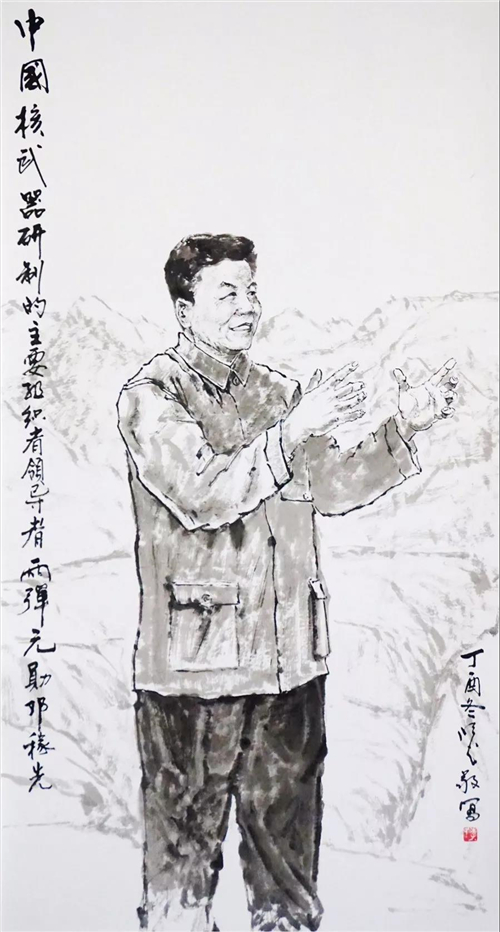 中國核武器研制的主要组织者領导者 兩彈元勛邓稼先
丁酉冬敬寫